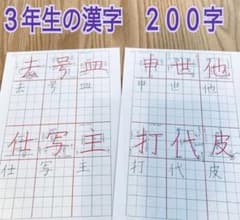 ３年生の漢字　２００字
去号血
去 号 血
仕写主
仕 写 主
申世他
申 世 他
打代皮
打 代 皮